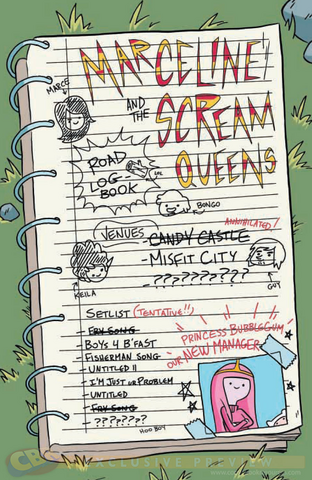 MARCELINE
AND THE
SCREAM
QUEENS
MARCE
ROAD
LOG-
BOOK
LOL
BONGO
VENUES
ANNIHILATED!
-CANDY CASTLE
-MISFIT CITY
-?????????
KEILA
GUY
SETLIST (TENTATIVE!!)
-FRY SONG
-BOYS 4 B'FAST
-FISHERMAN SONG
-UNTITLED II
-I'M JUST UR PROBLEM
-UNTITLED
-FRY SONG
-???????
HOO BOY
PRINCESS BUBBLEGUM
OUR NEW MANAGER
EXCLUSIVE PREVIEW